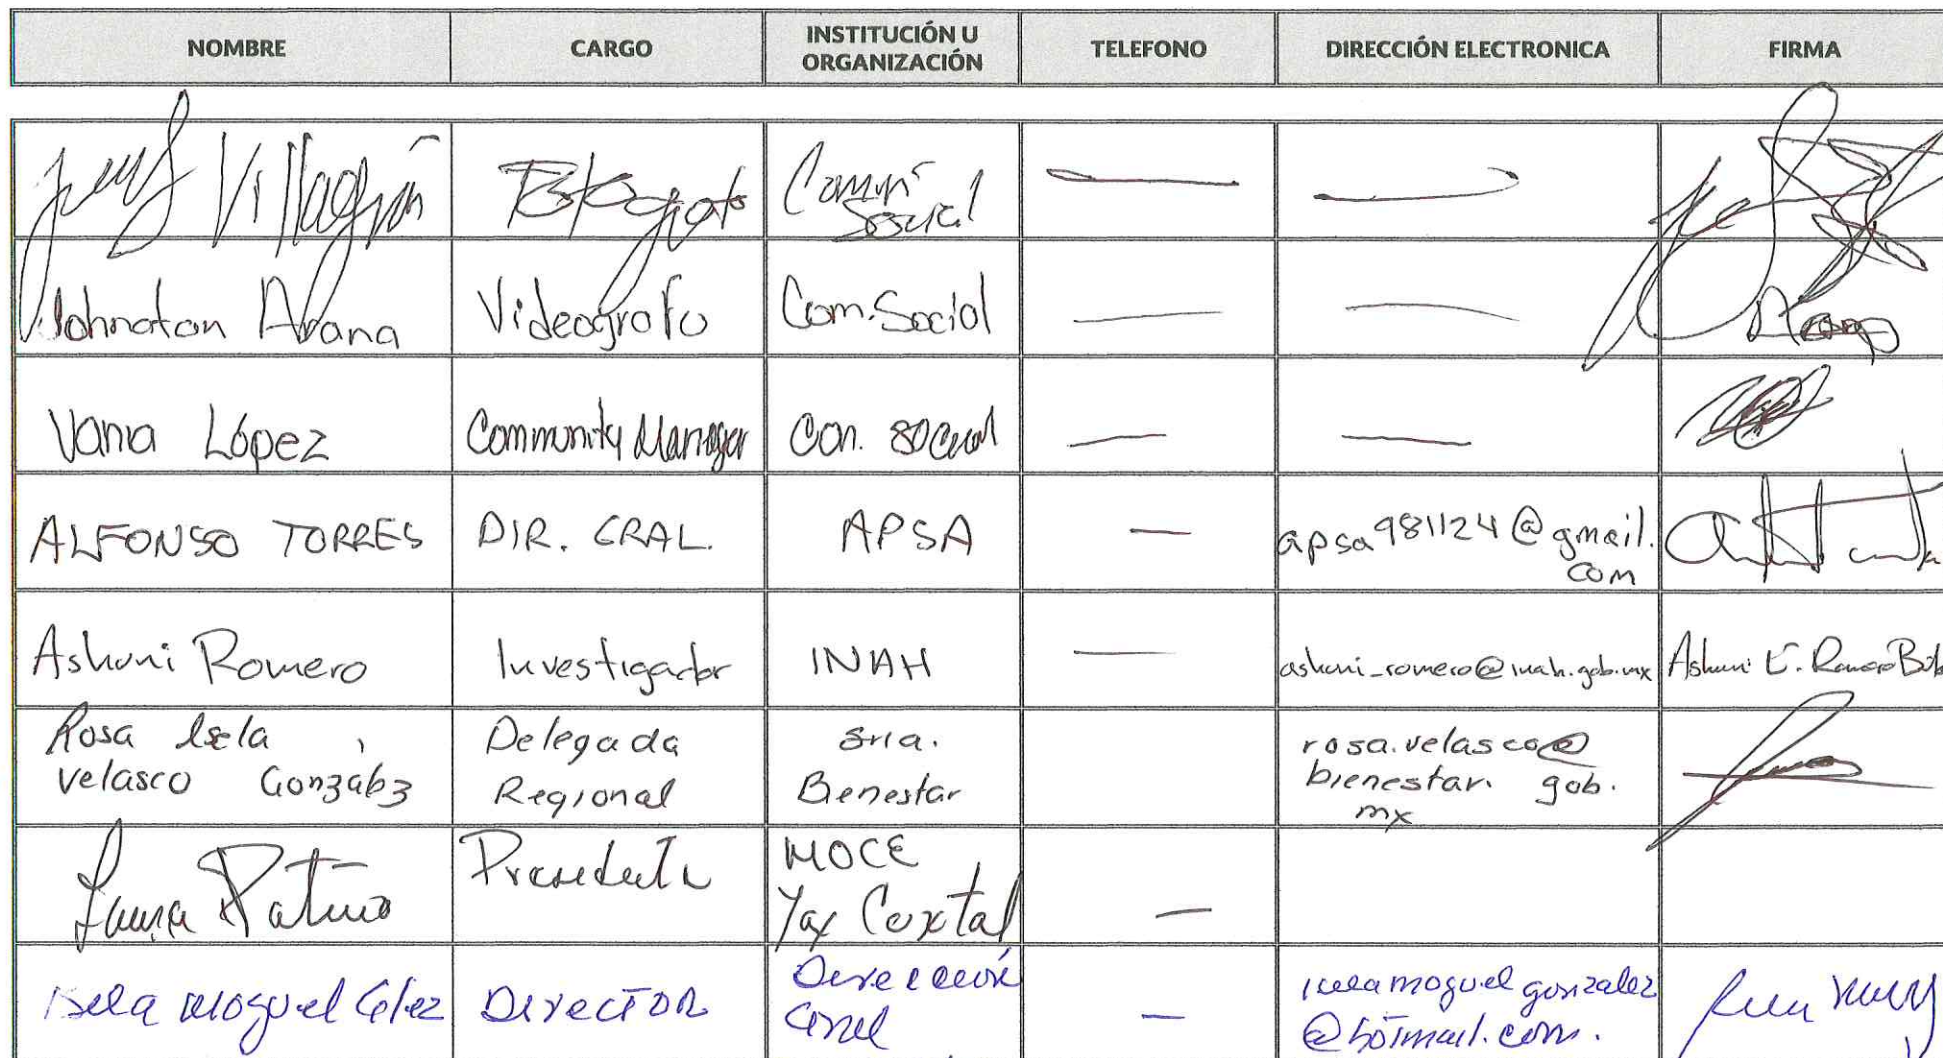 NOMBRE CARGO INSTITUCIÓN U ORGANIZACIÓN TELEFONO DIRECCIÓN ELECTRONICA FIRMA
Villagrán Social
Johnatan Arana Videografo Com. Social
Vania López Community Manager Con. social
ALFONSO TORRES DIR. GRAL. APSA apsa981124@gmail.
com
Ashuni Romero Investigador INAH ashuni_romero@inah.gob.mx Ashuni E. Romero
Rosa Isela Delegada Sria. rosa.velasco@
Velasco González Regional Bienestar bienestar. gob.
mx
Laura Patiño Presidenta MOCE
Yax Cuxtal
Isela Moguel Glez DIRECTOR Dirección
Gral
moguel gonzalez
@hotmail.com.